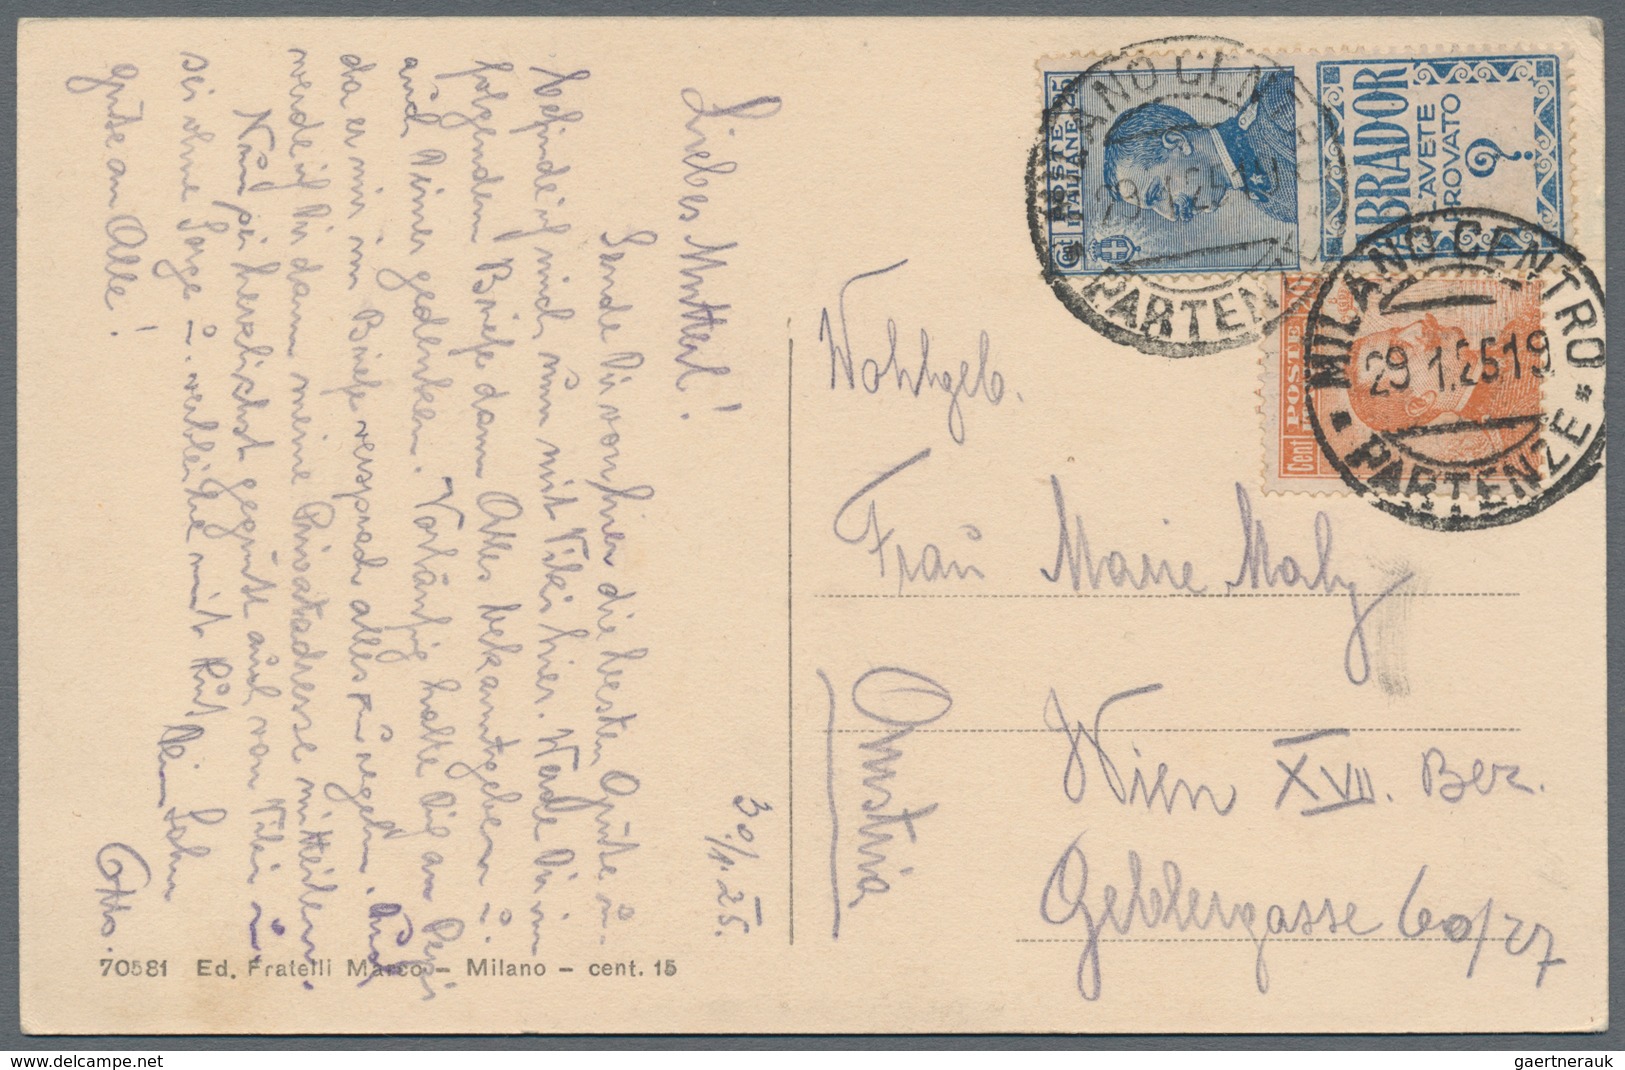 Liebes Mutterl!
30/1. 25.
Sende Dir von hier die besten Grüße u.
befinde ich mich nun mit Viki hier. Werde Dir im
folgendem Briefe dann Alles bekanntgeben u.
auch Deiner gedenken. Vorläufig halte Dich an Pepi
da er mir im Briefe versprach alles zu regeln. Auch
werde ich Dir dann meine Privatadresse mitteilen.
Nun sei herzlichst gegrüßt auch von Viki u.
sei ohne Sorge u. verbleibe mit Kuß Dein Sohn
Otto.
Grüße an Alle!
70581 Ed. Fratelli Marco - Milano - cent. 15
POSTE ITALIANE
Cent. 25
ABRADOR
LAVETE
PROVATO
?
MILANO CENTRO
29.1.25.19
PARTENZE
POSTE
Cent
MILANO CENTRO
29 1.25.19
PARTENZE
Wohlgeb.
Frau Marie Maly
Wien XVII. Bez.
Geblergasse 60/27
Austria
gaertnerauk
gaertnerauk.com